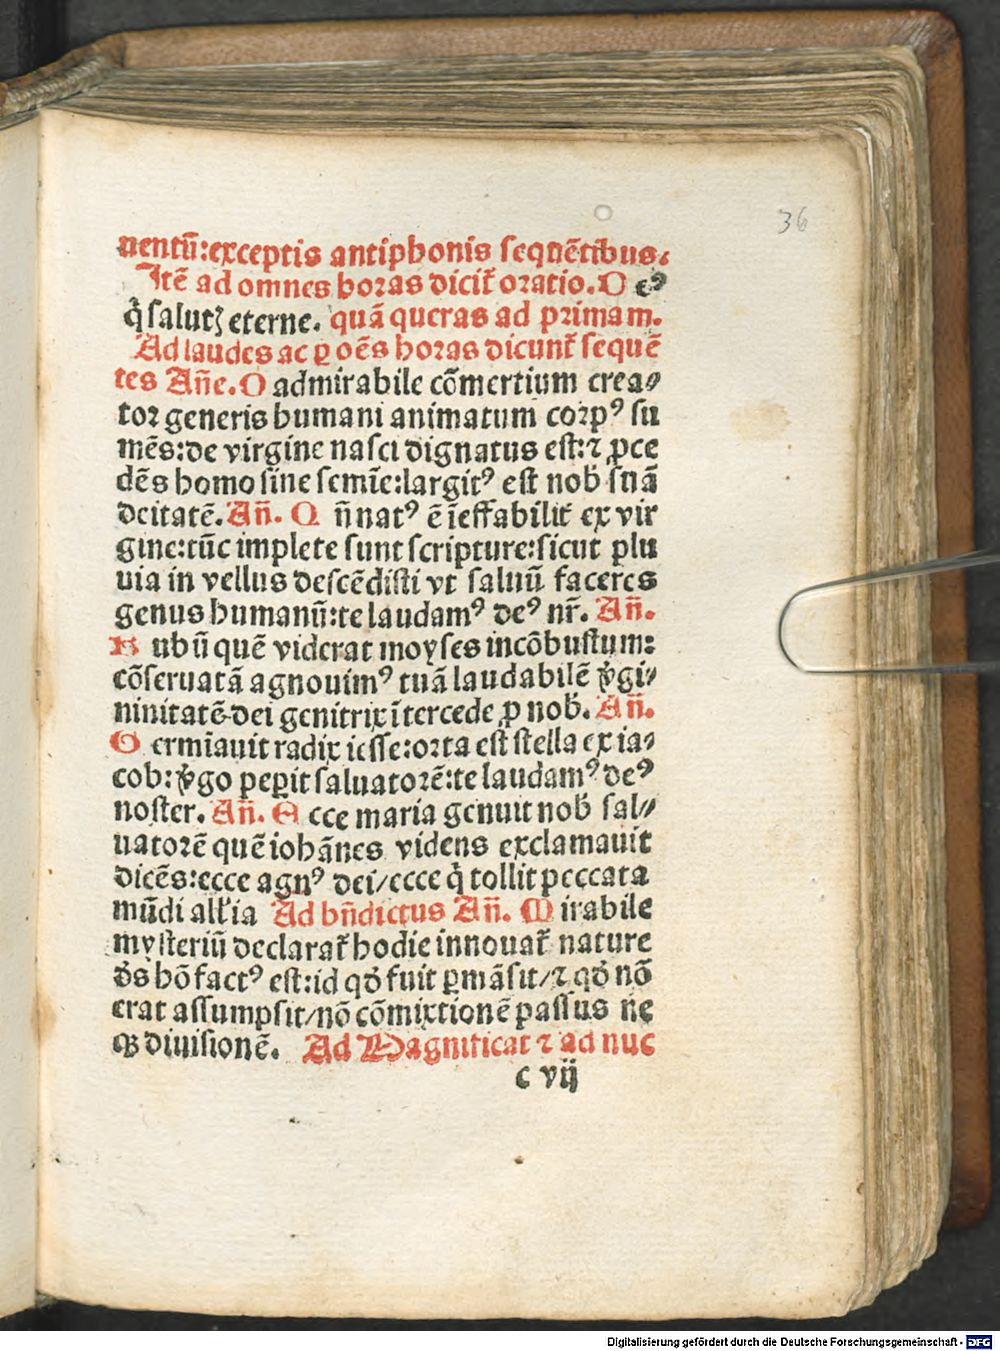 36
uentū:exceptis antiphonis sequētibus.
Itē ad omnes horas dicit᷑ oratio. D eꝰ
q̇ salutꝫ eterne. quā queras ad primam.
Ad laudes ac ꝑ oēs horas dicunt᷑ sequē
tes Añe. O admirabile cōmertium crea⸗
tor generis humani animatum corpꝰ su
mēs:de virgine nasci dignatus est:⁊ ꝓce
dēs homo sine semīe:largitꝰ est nob̄ suā
deitatē. Añ. Q ñ natꝰ ē īeffabilit᷑ ex vir
gine:tūc implete sunt scripture:sicut plu
uia in vellus descēdisti vt saluū faceres
genus humanū:te laudamꝰ deꝰ nr̄. Añ.
R ubū quē viderat moyses incōbustum:
cōseruatā agnouimꝰ tuā laudabilē v̾gi⸗
ninitatē dei genitrix ītercede ꝓ nob̄. Añ.
G ermīauit radix iesse:orta est stella ex ia⸗
cob:v̾go peꝑit saluatorē:te laudamꝰ deꝰ
noster. Añ. E cce maria genuit nob̄ sal⸗
uatorē quē iohānes videns exclamauit
dicēs:ecce agnꝰ dei/ecce q̇ tollit peccata
mūdi all'ia Ad bñdictus Añ. M irabile
mysteriū declarat᷑ hodie innouat᷑ nature
de᷒s hō factꝰ est:id qđ fuit ꝑmāsit/⁊ qđ nō
erat assumpsit/nō cōmixtionē passus ne
qꝫ diuisionē. Ad Magnificat ⁊ ad nuc
c vij
Digitalisierung gefördert durch die Deutsche Forschungsgemeinschaft - DFG